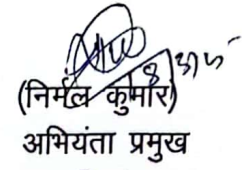 (निर्मल कुमार)
अभियंता प्रमुख